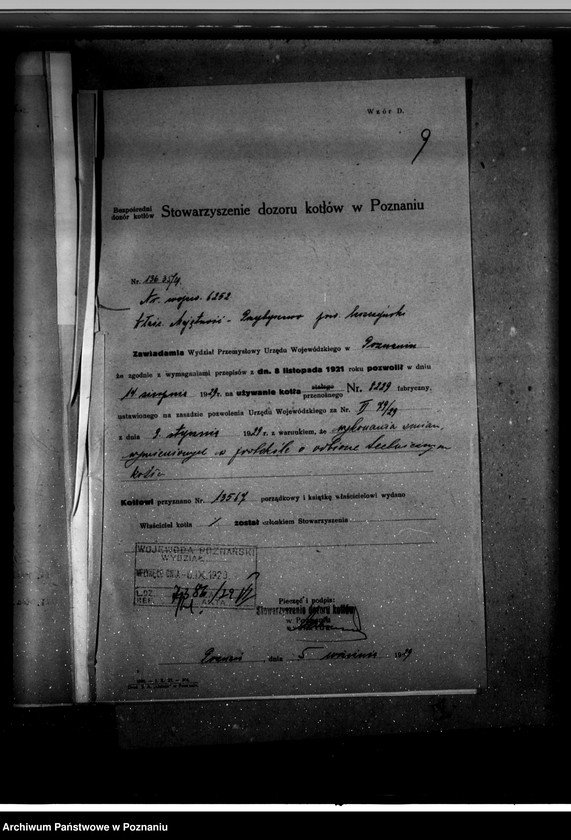 Wzór D.
9
Bezpośredni
dozór kotłów
Stowarzyszenie dozoru kotłów w Poznaniu
Nr.
No. wojew. 6252
Zawiadamia Wydział Przemysłowy Urzędu Wojewódzkiego w Poznaniu
że zgodnie z wymaganiami przepisów z dn. 8 listopada 1921 roku pozwolił w dniu
14 sierpnia 1929 r. na używanie kotła stałego przenośnego Nr. 8229 fabryczny,
ustawionego na zasadzie pozwolenia Urzędu Wojewódzkiego za Nr. II
z dnia 9 stycznia 1929 r. z warunkiem, że wykonania zmian,
wymienionych w protokóle o odbiorze technicznym
kotła
Kotłowi przyznano Nr. 13567 porządkowy i książkę właścicielowi wydano
Właściciel kotła / został członkiem Stowarzyszenia
WOJEWODA POZNAŃSKI
WYDZIAŁ
IX. 1929
L. DZ.
REF. AKTA
Pieczęć i podpis:
Stowarzyszenie dozoru kotłów
w Poznaniu
Poznań, dnia 5 września 1929
Archiwum Państwowe w Poznaniu